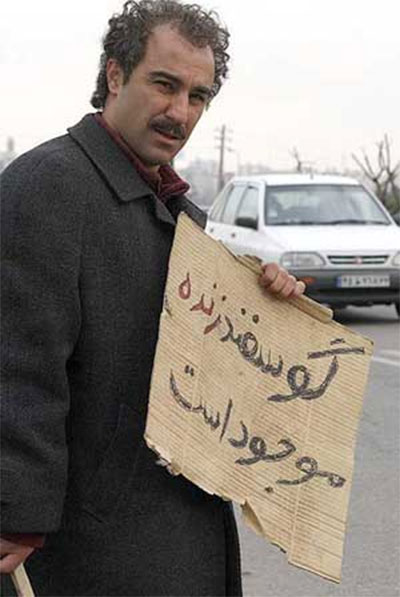 گوسفند زنده
موجود است